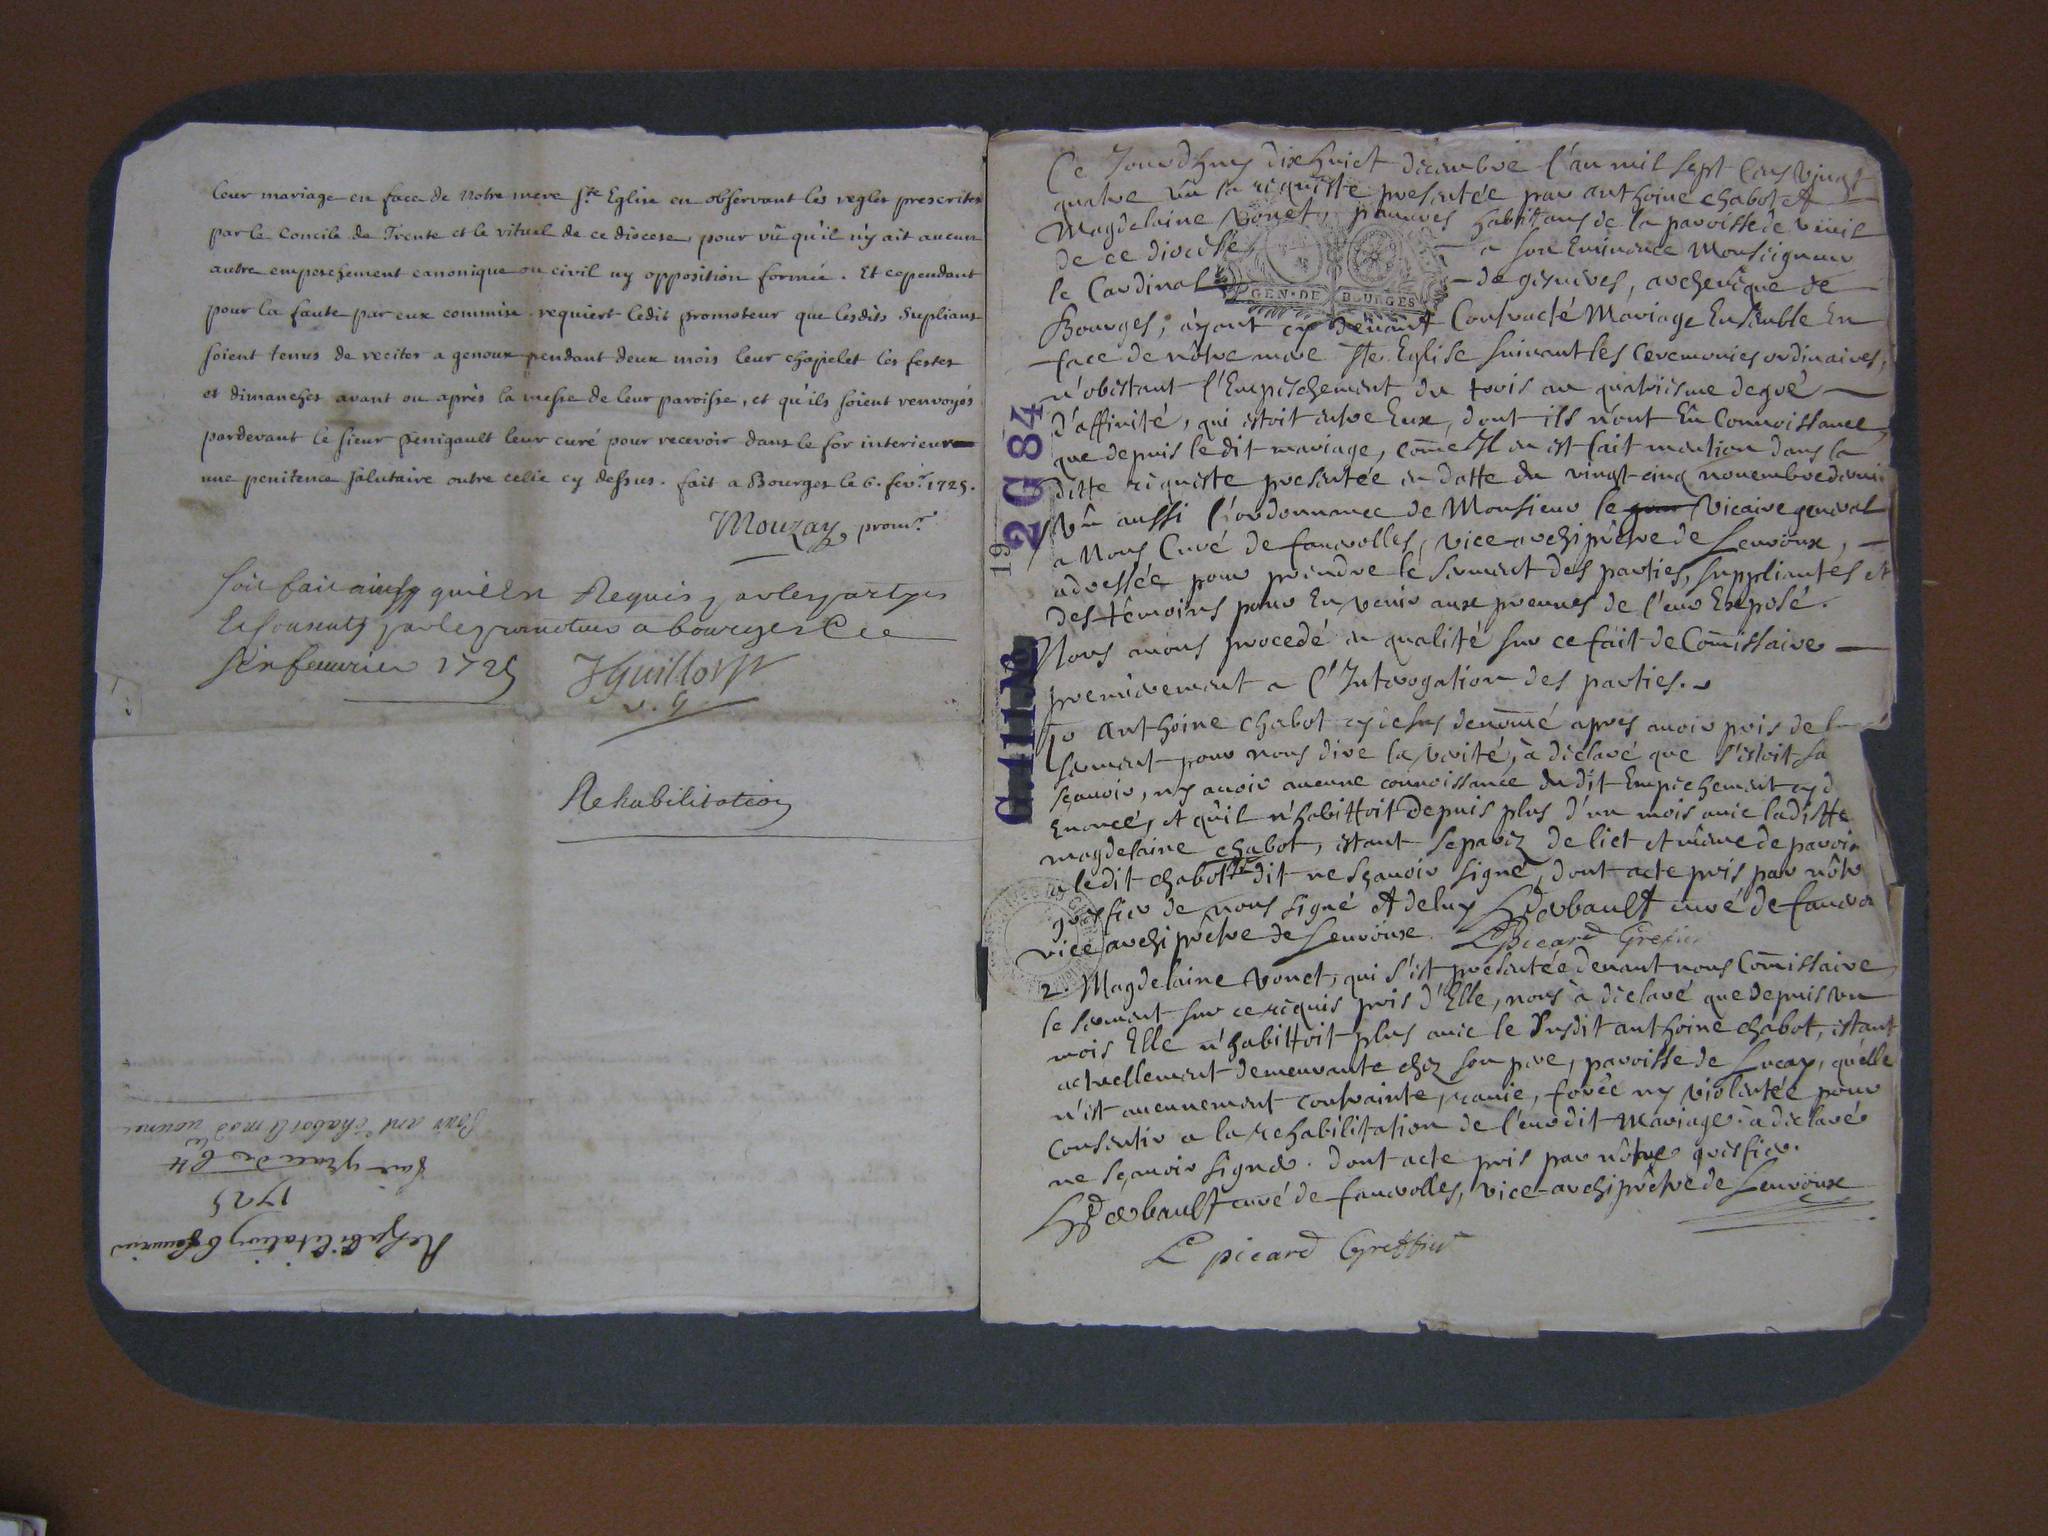 leur mariage en face de Notre mere Ste Eglise en observant les regles prescrites
par le Concile de Trente et le rituel de ce diocese, pour vû qu'il n'y ait aucun
autre empeschement canonique ou civil ny opposition formée. Et cependant
pour la faute par eux commise requiert ledit promoteur que lesdits Suplians
soient tenus de reciter a genoux pendant deux mois leur chapelet les festes
et dimanches avant ou après la messe de leur paroisse, et qu'ils soient renvoyés
pardevant le sieur penigault leur curé pour recevoir dans le for interieur
une penitence salutaire outre celle cy dessus. fait a Bourges le 6. fevr. 1725.
Mouzay promr.
soit fait ainsy qu'il est Requis par les partyes
Et consenty par le promoteur a bourges ce
six feuvrier 1725 Guillot
v. g.
Rehabilitation
Rehabilitation 6 feuvrier
1725
par grace de
Pour ant chabot
2G 84
19
GEN. DE BOURGES
Ce Jourdhuy dix huict decembre l'an mil sept Cens vingt
quatre vû la requeste presentée par anthoine chabot et
Magdelaine vonet, pauuves habittans de la paroisse de
de ce diocése a son Eminence Monseigneur
le Cardinal de gesures, archeuêque de
Bourges, ayant cy deuant Contracté Mariage Ensemble En
face de nôtre mere Ste. Eglise suivant les ceremonies ordinaires,
n'obstant l'Empeschement du trois au quatriesme degré
d'affinité, qui estoit entre Eux, dont ils n'ont Eû Connoissance,
que depuis le dit mariage, come Il en est fait mention dans la
ditte requeste presentée en datte du vingt-cinq novembre dernier
Vû aussi l'ordonnance de Monsieur le Vicaire general
a Nous Curé de faverolles, vice-archiprêtre de Levroux,
adressée pour prendre le serment des parties, suppliantes et
des témoins pour En venir aux preuves de l'eur Exposé.
Nous auons procedé en qualité sur ce fait de Comissaire
premierement a l'Interogation des parties.
Io anthoine chabot cy desus denomé apres auoir pris de l
serment pour nous dire la verité, à declaré que s'estoit sa
sçauoir, ny auoir aucune connoissance du dit Empechement cy d
Enoncé, et qu'il n'habittoit depuis plus d'un mois auec laditte
magdelaine chabot, estant separez de lict et même de paroi
a ledit chabot dit ne sçauoir signé, dont acte pris par nôtre
greffier de nous signé et de luy Herbault curé de favero
vice archiprêtre de Levroux. Le Picard Greffier
2. Magdelaine vonet, qui s'est presentée deuant nous Comissaire
le serment sur ce requis pris d'Elle, nous à declaré que depuis un
mois Elle n'habittoit plus auec le susdit anthoine chabot, estant
actuellement demeurante chez son pere, paroisse de Luçay, qu'elle
n'est aucunement contrainte, rauie, forcée ny violentée pour
Consentir a la rehabilitation de l'eurdit Mariage. à declaré
ne sçauoir signer. dont acte pris par nôtre greffier.
Herbault curé de faverolles, vice-archiprêtre de Levroux
Le picard Greffier